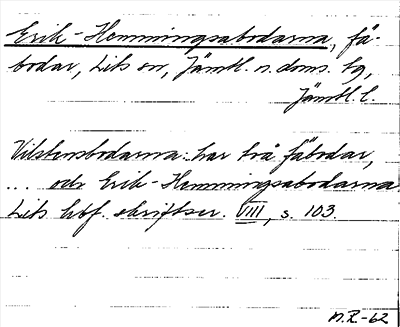 Erik-Hemmingsabodarna, fä-
bodar, Lits sn, Jämtl. n. doms. tg,
Jämtl. l.
har två fäbodar,
... och Erik-Hemmingsabodarna.
Lits hbf. skriftser. VIII, s. 103.
N.R-62